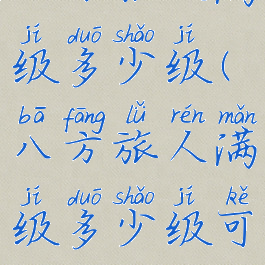 jí duō shǎo jí
级多少级(
bā fāng lǚ rén mǎn
八方旅人满
jí duō shǎo jí kě
级多少级可